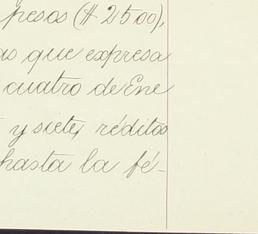 pesos ($2500),
as que expresa
cuatro de Ene
y siete, réditos
hasta la fé-